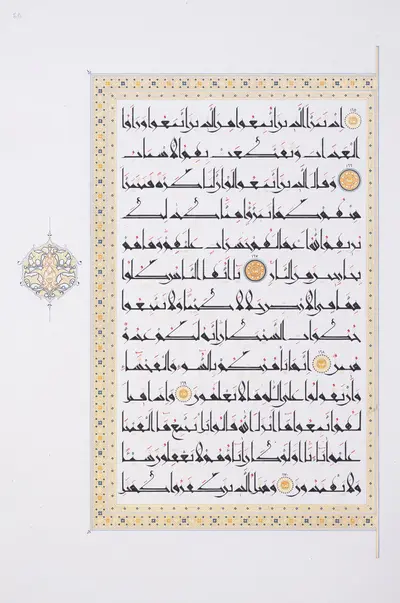 إذ تبرأ الذين اتبعوا من الذين اتبعوا ورأوا
العذاب وتقطعت بهم الأسباب
وقال الذين اتبعوا لو أن لنا كرة فنتبرأ
منهم كما تبرءوا منا كذلك
يريهم الله أعمالهم حسرات عليهم وما هم
بخارجين من النار يا أيها الناس كلوا
مما في الأرض حلالا طيبا ولا تتبعوا
خطوات الشيطان إنه لكم عدو
مبين إنما يأمركم بالسوء والفحشاء
وأن تقولوا على الله ما لا تعلمون وإذا قيل
لهم اتبعوا ما أنزل الله قالوا بل نتبع ما ألفينا
عليه آباءنا أولو كان آباؤهم لا يعقلون شيئا
ولا يهتدون ومثل الذين كفروا كمثل